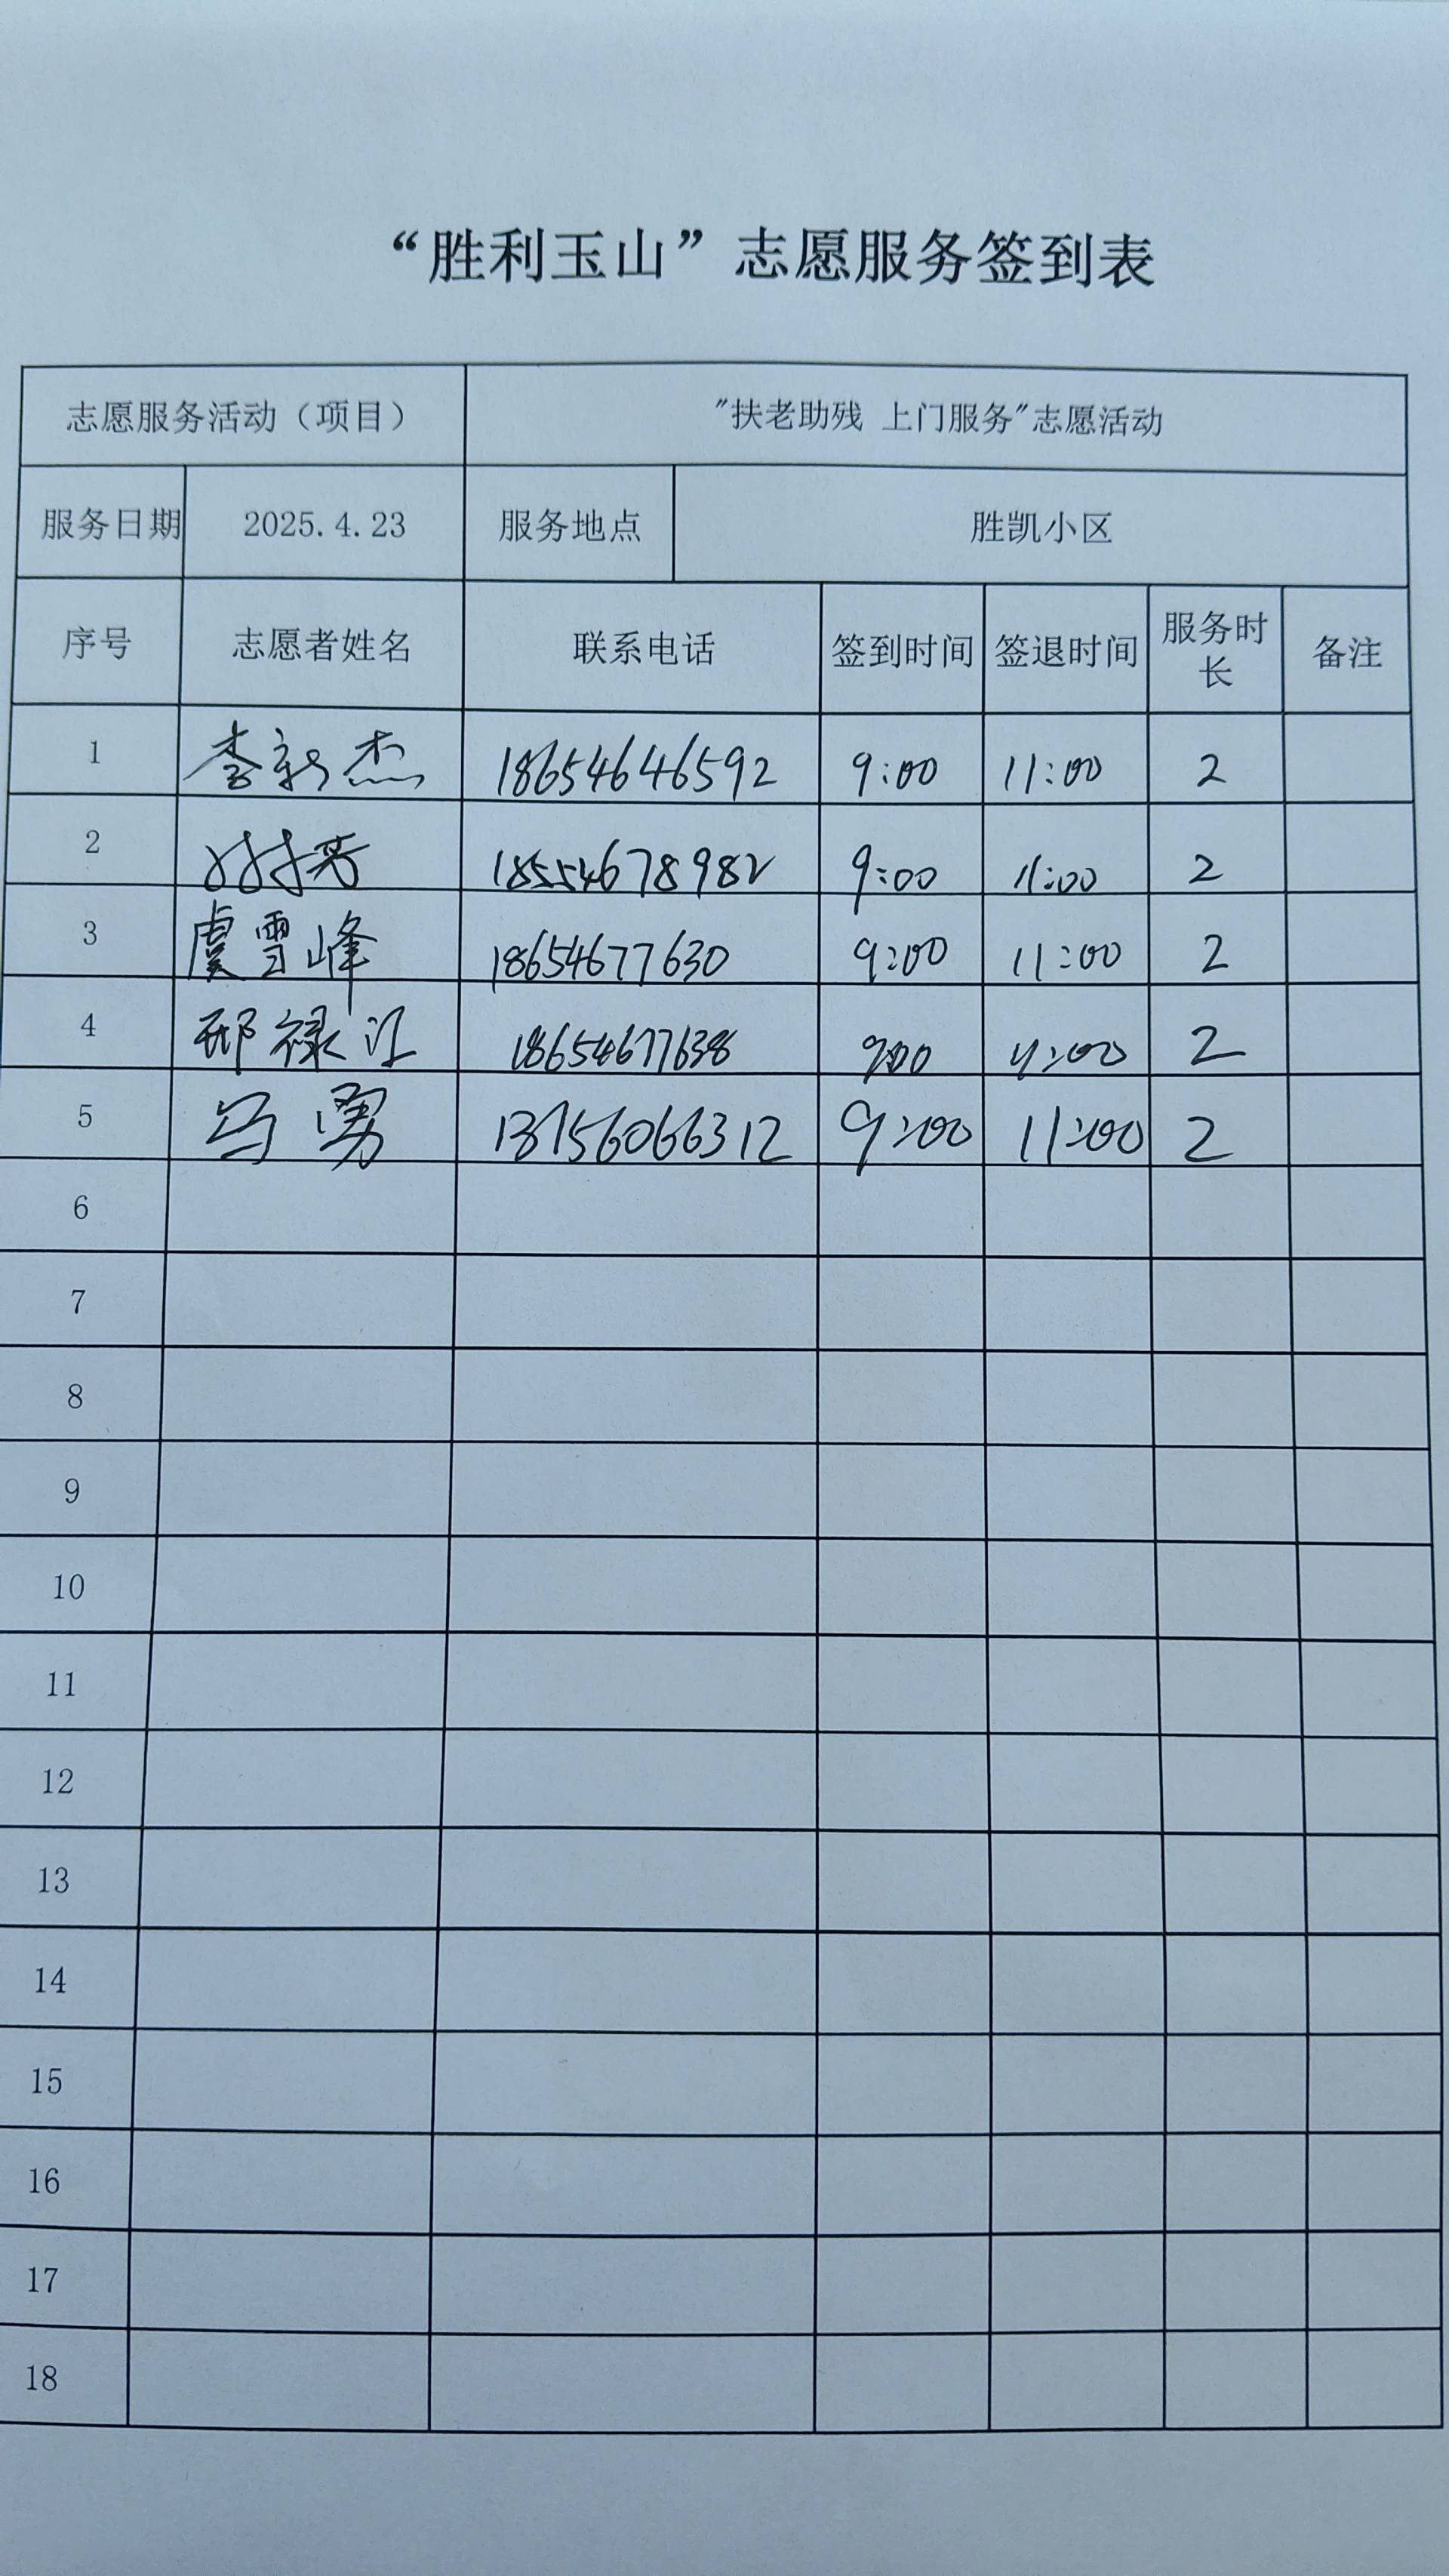 “胜利玉山”志愿服务签到表
志愿服务活动（项目） "扶老助残 上门服务"志愿活动
服务日期 2025.4.23 服务地点 胜凯小区
序号 志愿者姓名 联系电话 签到时间 签退时间 服务时长 备注
1 李新杰 18654646592 9:00 11:00 2
2 18554678982 9:00 11:00 2
3 虞雪峰 18654677630 9:00 11:00 2
4 邢禄 18654677638 900 11:00 2
5 马勇 13756066312 9:00 11:00 2
6
7
8
9
10
11
12
13
14
15
16
17
18